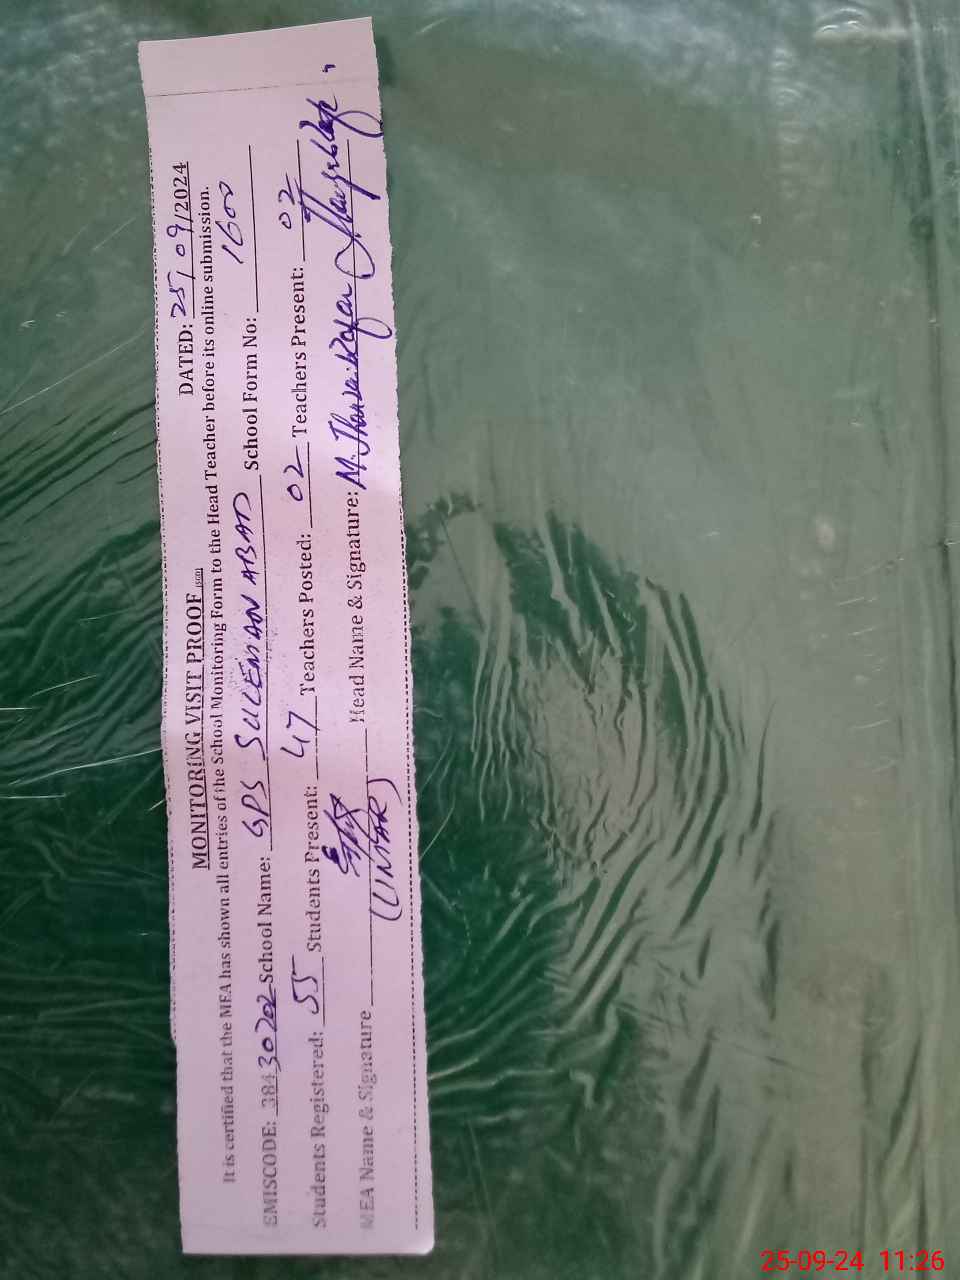 MONITORING VISIT PROOF (SED) DATED: 25/09/2024
It is certified that the MEA has shown all entries of the School Monitoring Form to the Head Teacher before its online submission.
EMISCODE: 38430202 School Name: GPS SULEMAN ABAD School Form No: 1600
Students Registered: 55 Students Present: 47 Teachers Posted: 02 Teachers Present: 02
MEA Name & Signature (UMAR) Head Name & Signature: M.
25-09-24 11:26